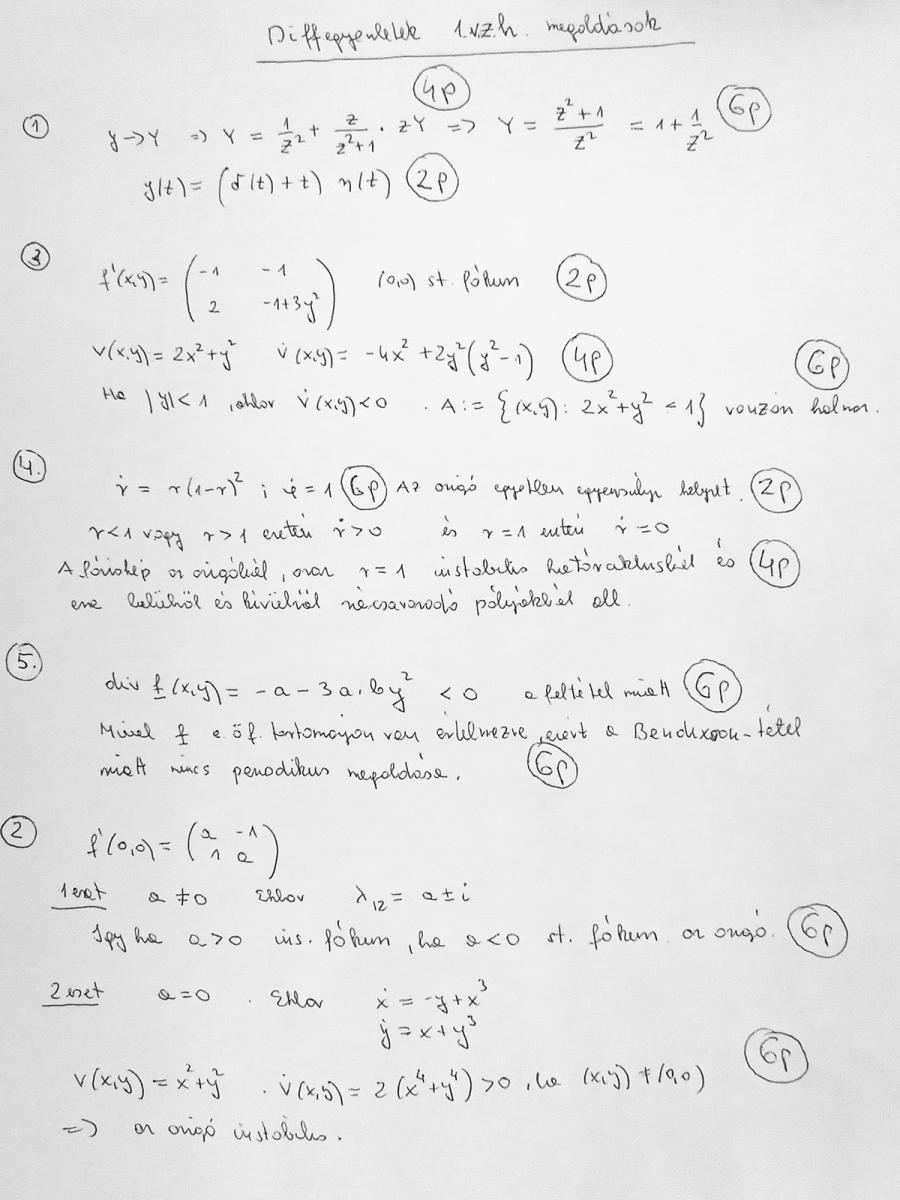 Diffegyenletek 1.v.z.h. megoldások
4p
① y→Y ⇒ Y = 1/z² + z/(z²+1) · zY ⇒ Y = (z²+1)/z² = 1 + 1/z² 6p
y(t) = (δ(t)+t) η(t) 2p
③ f'(x,y) = ( -1 -1 ; 2 -1+3y² ) (0,0) st. fókusz 2p
V(x,y) = 2x²+y² V̇(x,y) = -4x²+2y²(y²-1) 4p 6p
Ha |y|<1, akkor V̇(x,y)<0. A := {(x,y): 2x²+y² < 1} vonzón halmaz.
4. ṙ = r(1-r)²; φ̇ = 1 6p Az origó egyetlen egyensúlyi helyzet. 2p
r<1 vagy r>1 esetén ṙ>0 és r=1 esetén ṙ=0
A fáziskép az origóból, az r=1 instabilis határciklusból és 4p
erre belülről és kívülről rácsavarodó pályákból áll.
5. div f(x,y) = -a-3a·by² < 0 a feltétel miatt 6p
Mivel f e. öf. tartományon van értelmezve, ezért a Bendixson-tétel
miatt nincs periodikus megoldása. 6p
② f'(0,0) = ( a -1 ; 1 a )
1 eset a ≠ 0 Ekkor λ₁₂ = a±i
Így ha a>0 ins. fókusz, ha a<0 st. fókusz az origó. 6p
2 eset a=0. Ekkor ẋ = -y+x³
ẏ = x+y³
V(x,y) = x²+y². V̇(x,y) = 2(x⁴+y⁴)>0, ha (x,y) ≠ (0,0) 6p
⇒ az origó instabilis.